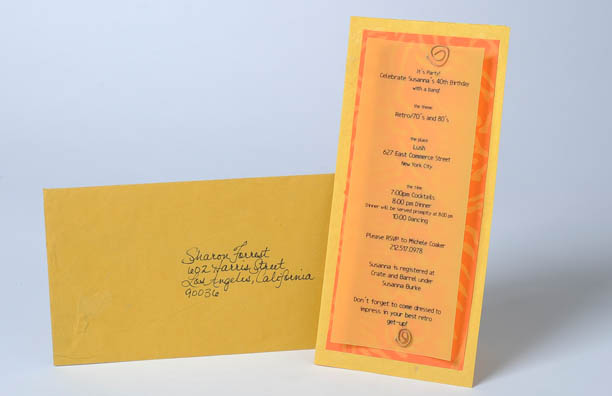 It's Party!
Celebrate Susanna's 40th Birthday
with a bang!
the theme
Retro/70's and 80's
the place
Lush
627 East Commerce Street
New York City
the time
7:00pm Cocktails
8:00 pm Dinner
Dinner will be served promptly at 8:00 pm
10:00 Dancing
Please RSVP to Michele Coaker
212.517.0978
Susanna is registered at
Crate and Barrel under
Susanna Burke
Don't forget to come dressed to
impress in your best retro
get-up!
Sharon Forrest
602 Harris Street
Los Angeles, California
90036